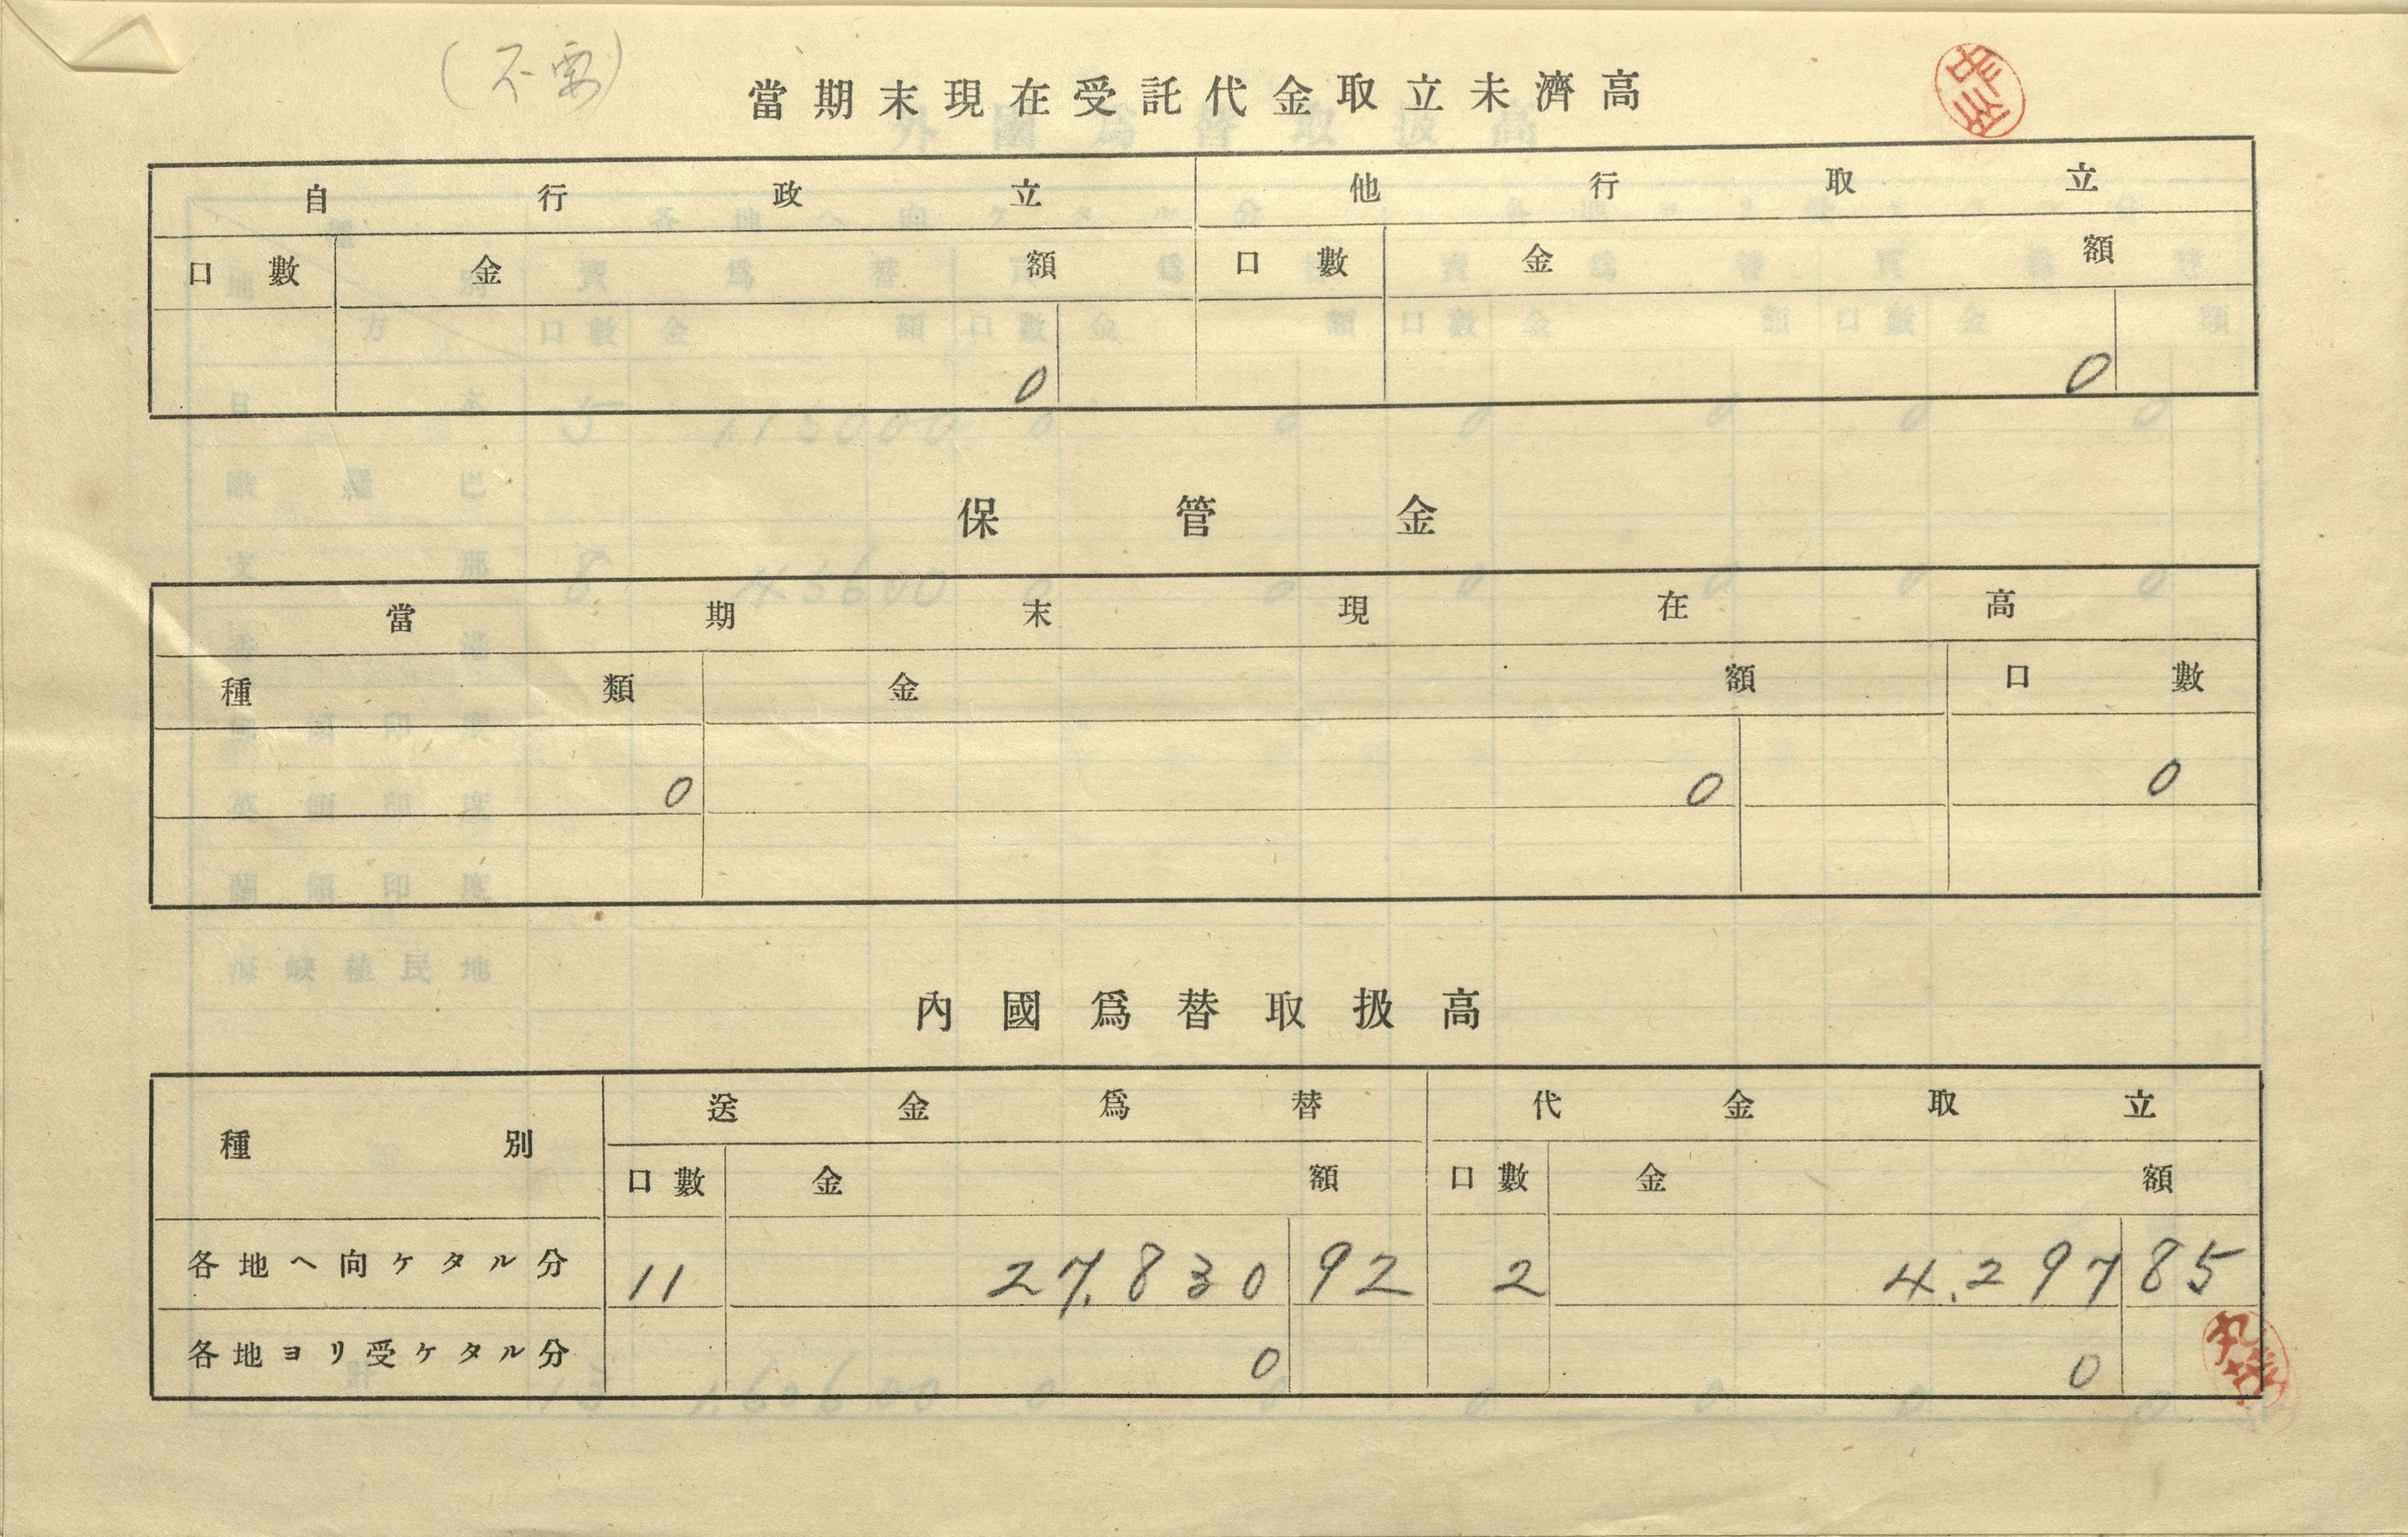 (不要)
當期末現在受託代金取立未濟高
自行政立 他行取立
口數 金額 口數 金額
0 0
保管金
當期末現在高
種類 金額 口數
0 0 0
內國爲替取扱高
種別 送金爲替 代金取立
口數 金額 口數 金額
各地ヘ向ケタル分 11 27,830 92 2 4.297 85
各地ヨリ受ケタル分 0 0